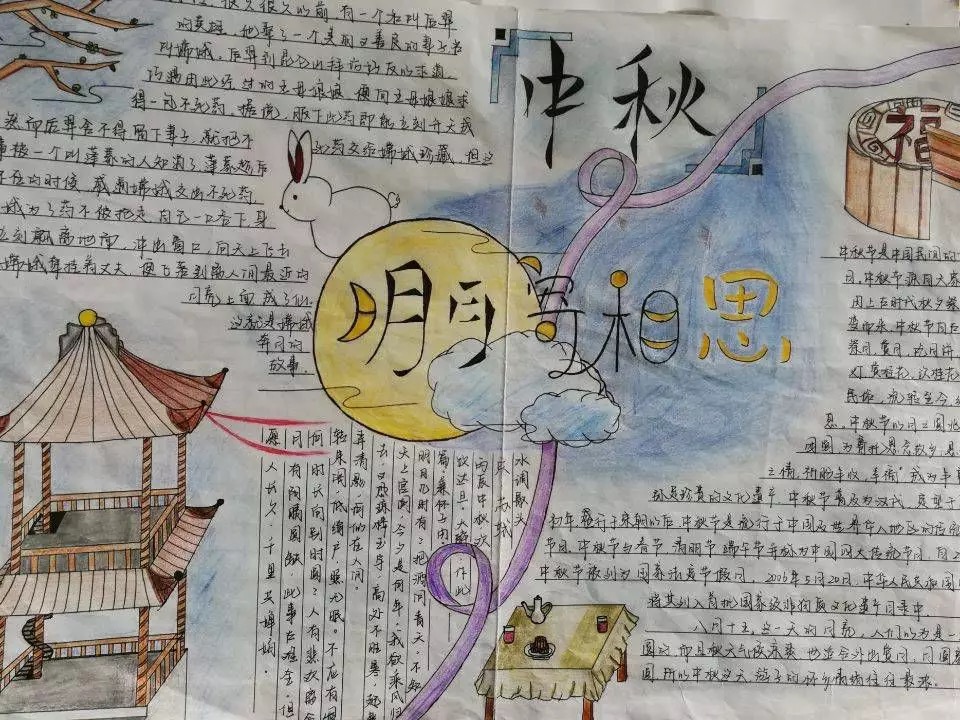 中秋
明月寄相思
福
很久很久以前,有一个名叫后羿
的英雄,他娶了一个美丽又善良的妻子名
叫嫦娥。后羿到昆仑山拜访访友以求道
巧遇由此经过的王母娘娘,便向王母娘娘求
得一包不死药。据说,服下此药即能立刻升天成
然而后羿舍不得留下妻子,就把不
死药交给嫦娥珍藏。但这
事被一个叫蓬蒙的人知道了蓬蒙趁后
不在的时候,威逼嫦娥交出不死药
娥为了药不被抢走,自己一口吞下身
立刻飘离地面,冲出窗口,向天上飞去
嫦娥牵挂着丈夫,便飞落到离人间最近的
月亮上面成了仙。
这就是嫦娥
奔月的
故事。
水调歌头
宋 苏轼
丙辰中秋,欢
饮达旦,大醉,作此
篇,兼怀子由
明月几时有?把酒问青天。不知
天上宫阙,今夕是何年。我欲乘风归
去,又恐琼楼玉宇,高处不胜寒。起舞
弄清影,何似在人间。
转朱阁,低绮户,照无眠。不应有恨
何时长向别时圆?人有悲欢离合
月有阴晴圆缺,此事古难全。但
愿人长久,千里共婵娟。
中秋节是中国民间的
月,中秋节源自天象
由上古时代秋夕祭
变而来。中秋节自古
祭月、赏月、吃月饼
灯、赏桂花、饮桂花
民俗,流传至今,
息。中秋节以月之圆兆
团圆,为寄托思念故乡,思
之情,祈盼丰收、幸福,成为丰富
珍贵的文化遗产。中秋节普及于汉代,定型于
初年,盛行于宋朝以后。中秋节是流行于中国及世界华人地区的传统
节日,中秋节与春节、清明节、端午节并称为中国四大传统节日。自2
中秋节被列为国家法定节假日。2006年5月20日,中华人民共和国
将其列入首批国家级非物质文化遗产名录中。
八月十五,这一天的月亮,人们认为是一
圆的,而且秋天气候凉爽,也适合外出赏月,月圆
圆,所以中秋这天,游子的怀乡病情往往最浓。